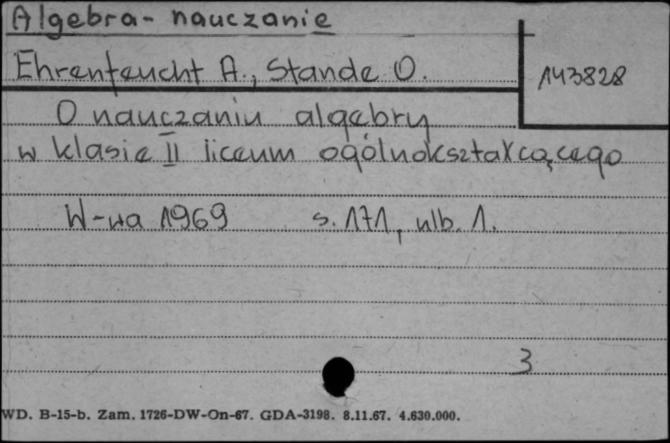 Algebra - nauczanie
Ehrenfeucht A., Stande O.
143828
O nauczaniu algebry
w klasie II liceum ogólnokształcącego
W-wa 1969 s. 171, nlb. 1.
3
WD. B-15-b. Zam. 1726-DW-On-67. GDA-3198. 8.11.67. 4.630.000.